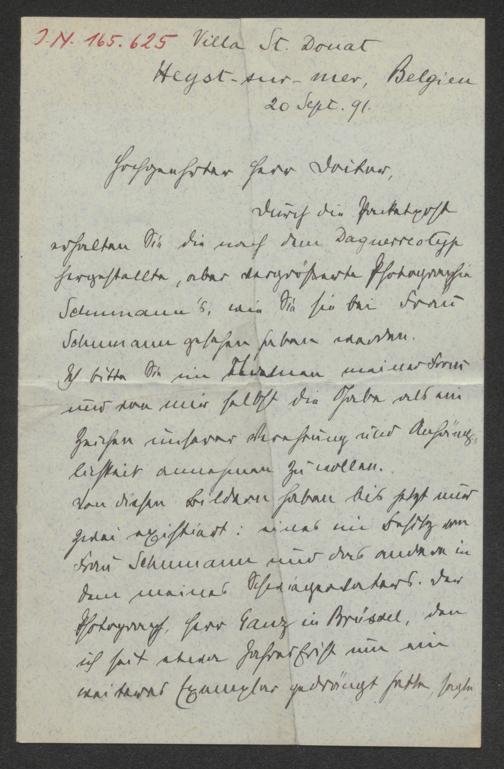 J.N. 165.625 Villa St. Donat
Heyst-sur-mer, Belgien
20 Sept. 91.
Hochgeehrter Herr Doctor,
Durch die Packetpost
erhalten Sie die nach dem Daguerreotyp
hergestellte, aber vergrößerte Photographie
Schumann's, wie Sie sie bei Frau
Schumann gesehen haben werden.
Ich bitte Sie im Namen meiner Frau
und von mir selbst die Gabe als ein
Zeichen unserer Verehrung und Anhäng-
lichkeit annehmen zu wollen.
Von diesen Bildern haben bis jetzt nur
zwei existiert: eines im Besitz von
Frau Schumann und das andere in
dem meines Schwiegervaters. Der
Photograph, Herr Ganz in Brüssel, den
ich seit etwa Jahresfrist um ein
weiteres Exemplar gedrängt hatte, sagte